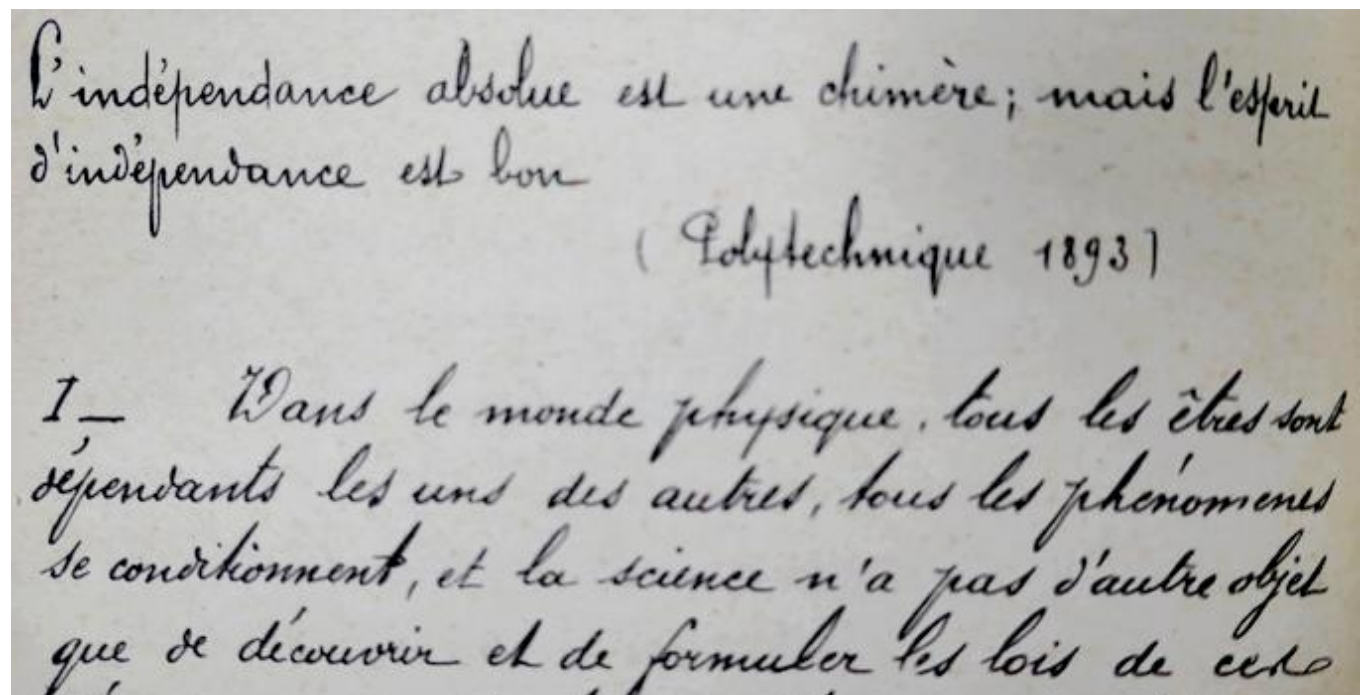 L'indépendance absolue est une chimère; mais l'esprit
d'indépendance est bon
(Polytechnique 1893)
I_ Dans le monde physique, tous les êtres sont
dépendants les uns des autres, tous les phénomènes
se conditionnent, et la science n'a pas d'autre objet
que de découvrir et de formuler les lois de